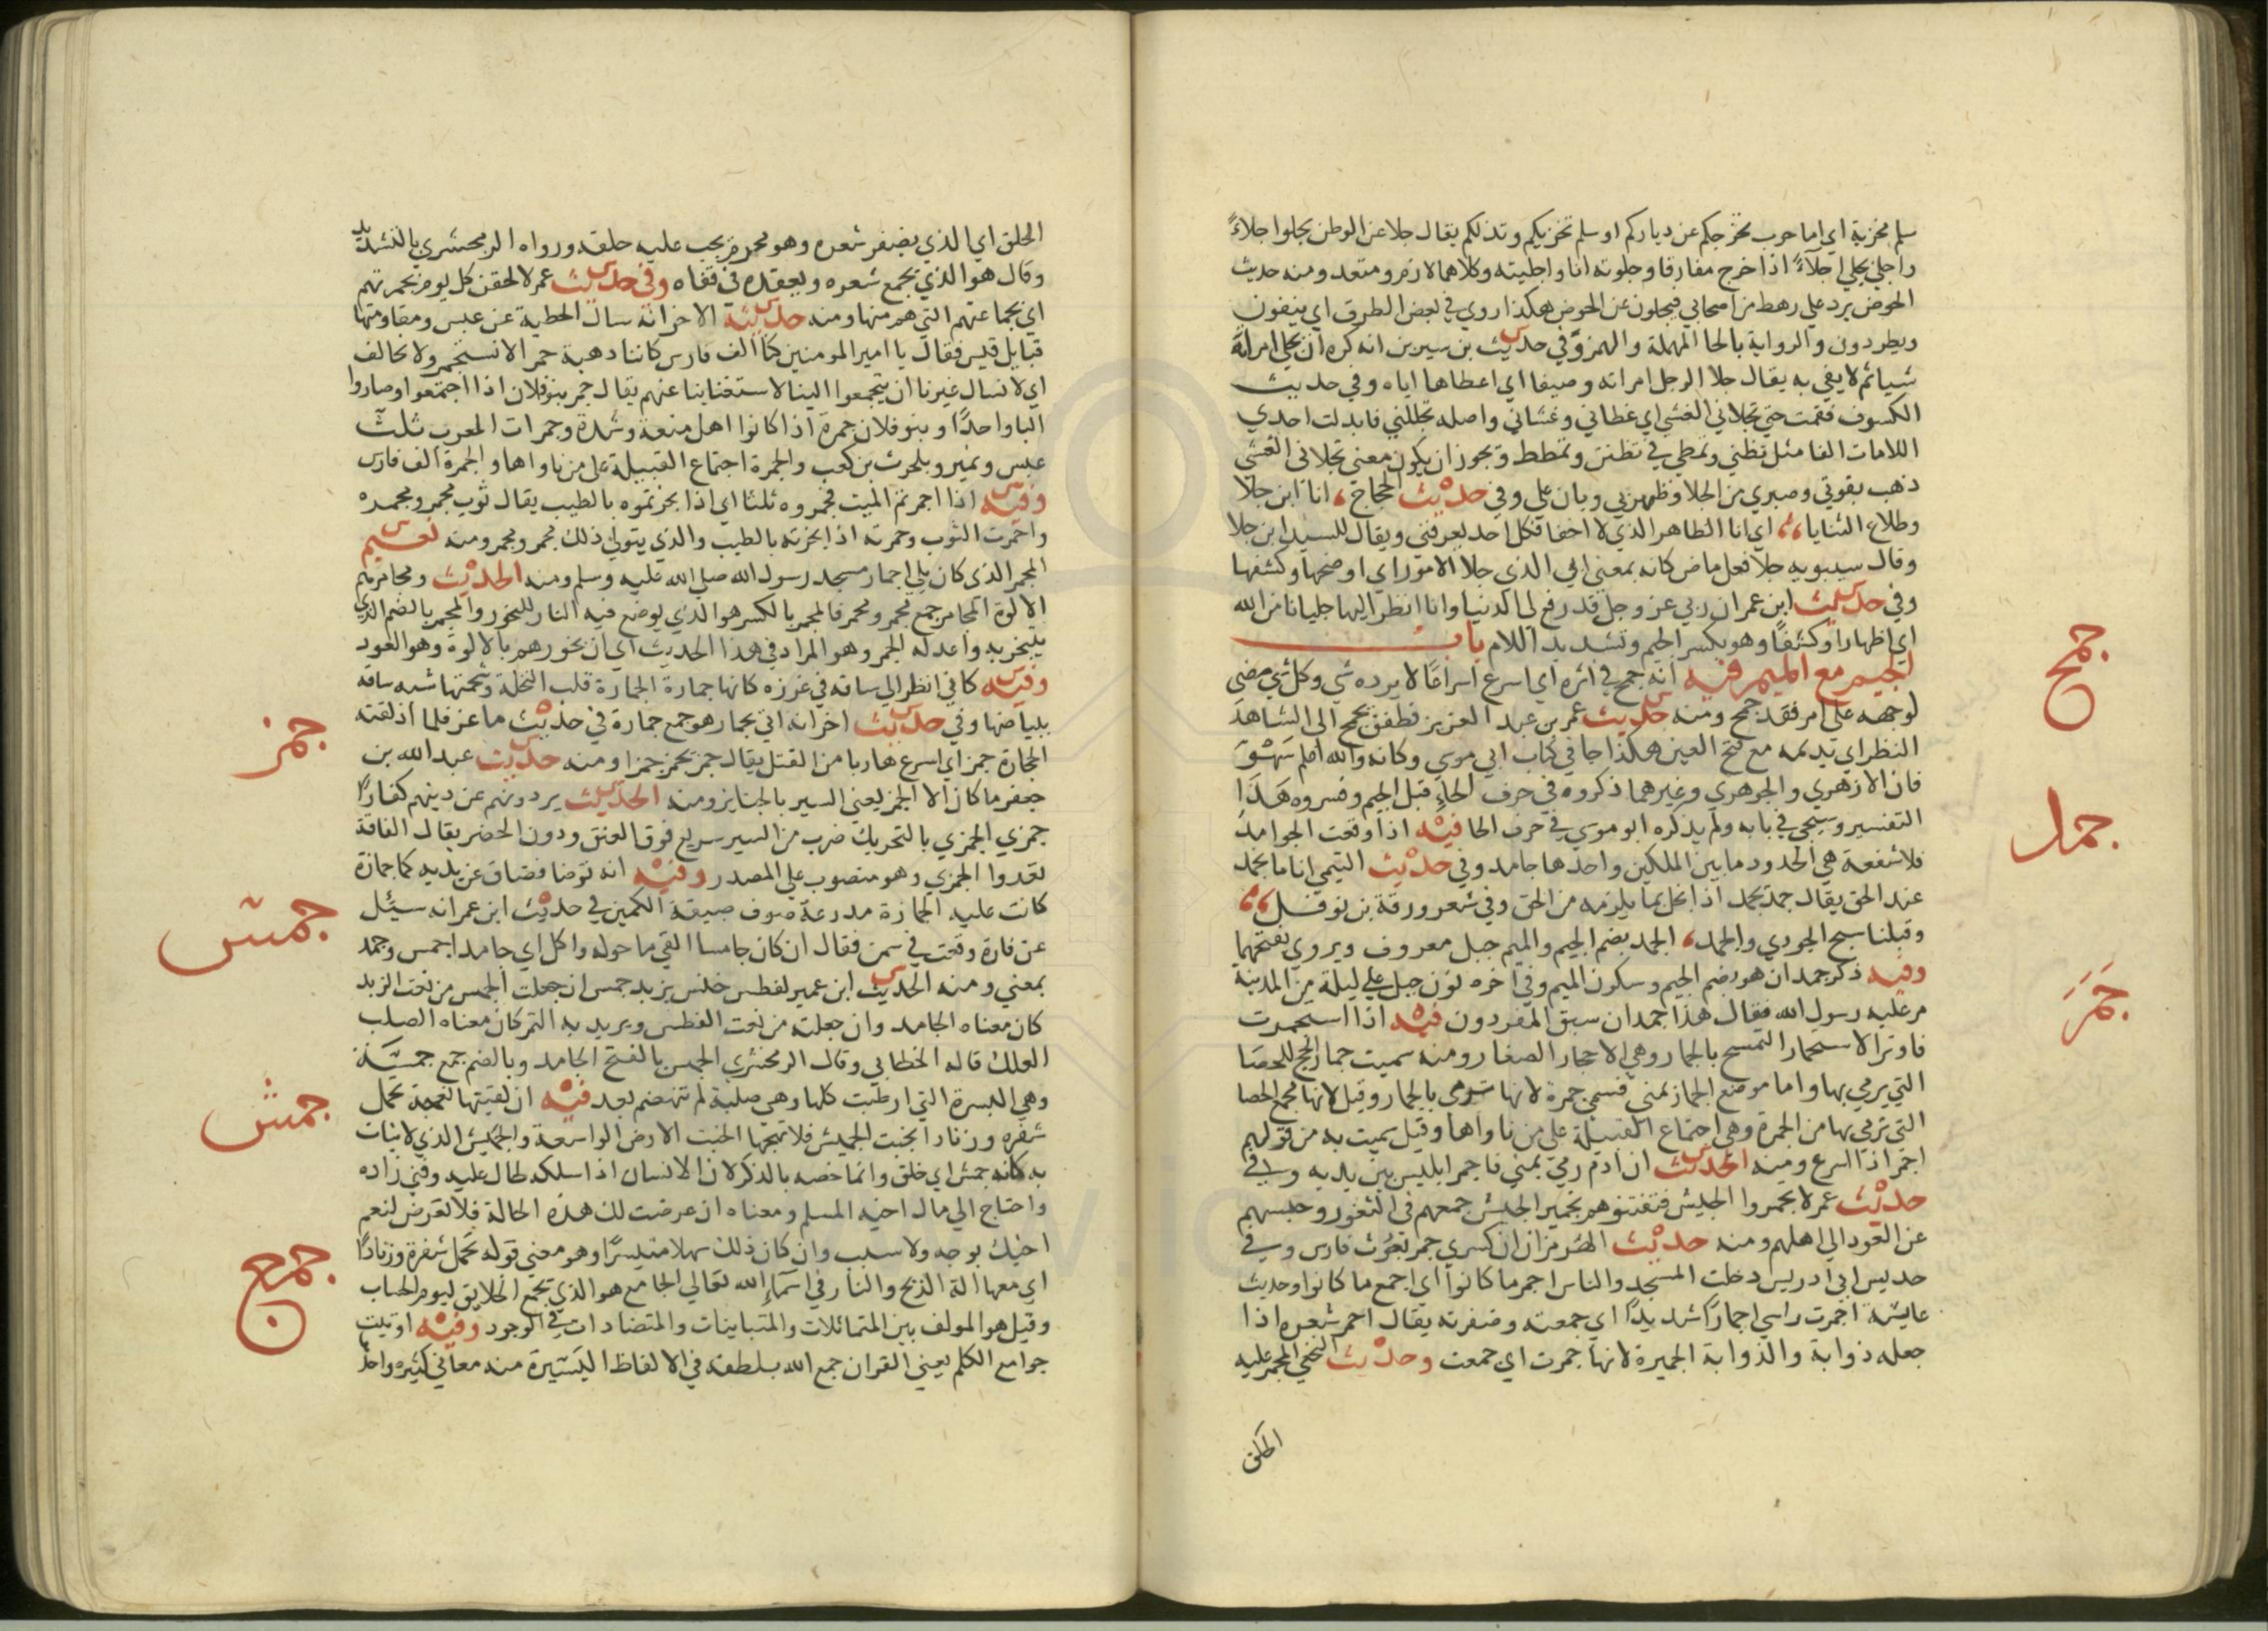 سلم مخزية اي اما حرب تخرجكم عن دياركم او سلم تخزيكم وتذلكم يقال جلا عن الوطن يجلوا جلاءً
واجلي يجلي اجلاءً اذا خرج مفارقا وجلوته انا واجليته وكلاهما لازم ومتعد ومنه حديث
الحوض يرد علي رهط من اصحابي فيجلون عن الحوض هكذا روي في بعض الطرق اي ينفون
ويطردون والرواية بالحا المهملة والهمز وفي حديث بن سيرين انه كره ان يجلي امراته
شيا ثم لا يفي به يقال جلا الرجل امراته وصيفا اي اعطاها اياه وفي حديث
الكسوف فقمت حتي تجلاني الغشي اي غطاني وغشاني واصله تجللني فابدلت احدي
اللامات الفا مثل تظني وتمطي في تظنن وتمطط ويجوز ان يكون معني تجلاني الغشي
ذهب بقوتي وصبري من الجلا وظهر بي وبان علي وفي حديث الحجاج انا ابن جلا
وطلاع الثنايا اي انا الظاهر الذي لا اخفا فكل احد يعرفني ويقال للسيد ابن جلا
وقال سيبويه جلا فعل ماض كانه بمعني ابي الذي جلا الامور اي اوضحها وكشفها
وفي حديث ابن عمر ان ربي عز وجل قد رفع لي الدنيا وانا انظر اليها جليانا من الله
اي اظهارا وكشفًا وهو بكسر الجيم وتشديد اللام باب
الجيم مع الميم فيه انه جمح في اثره اي اسرع اسراعًا لا يرده شي وكل شي مضي
لوجهه علي امر فقد جمح ومنه حديث عمر بن عبد العزيز فطفق يجمح الي الشاهد
النظر اي يديمه مع فتح العين هكذا جا في كتاب ابي موسي وكانه والله اعلم سَهْوٌ
فان الازهري والجوهري وغيرهما ذكروه في حرف الحاء قبل الجيم وفسروه هَذَا
التفسير وسيجي في بابه ولم يذكره ابو موسي في حرف الحا فيه اذا وقعت الجوامد
فلا شفعة هي الحدود ما بين الملكين واحدها جامد وفي حديث التيمي انا ما نجمد
عند الحق يقال جمد يجمد اذا بخل بما يلزمه من الحق وفي شعر ورقة بن نوفل
وقبلنا سبح الجودي والجمد الجمد بضم الجيم والميم جبل معروف ويروي بفتحهما
وفيه ذكر جمدان هو بضم الجيم وسكون الميم وفي اخره نون جبل علي ليلة من المدينة
مر عليه رسول الله فقال هذا جمدان سبق المفردون فيه اذا استجمرت
فاوتر الاستجمار التمسح بالجمار وهي الاحجار الصغار ومنه سميت جمار الحج للحصا
التي يرمي بها واما موضع الجمار بمني فسمي جمرة لانها ترمي بالجمار وقيل لانها مجمع الحصا
التي ترمي بها من الجمرة وهي اجتماع القبيلة علي من ناواها وقيل سميت به من قولهم
اجمر اذا اسرع ومنه الحديث ان ادم رمي بمني فاجمر ابليس بين يديه وفي
حديث عمر لا تجمروا الجيش فتفتنوهم تجمير الجيش جمعهم في الثغور وحبسهم
عن العود الي اهلهم ومنه حديث الهُرمزان ان كسري جمر بعُوث فارس وفي
حديس ابي ادريس دخلت المسجد والناس اجمر ما كانوا اي اجمع ما كانوا وحديث
عايشة اجمرت راسي اجمارًا شديدًا اي جمعته وضفرته يقال اجمر شعره اذا
جعله ذوابة والذوابة الجميرة لانها جمرت اي جمعت وحديث النخعي المجمر عليه
الحلق
جمح
جمد
جَمَرَ
الحلق اي الذي يضفر شعره وهو محرم يجب عليه حلقه ورواه الزمخشري بالتشديد
وقال هو الذي يجمع شعره ويعقده في قفاه وفي حديث عمر لالحقن كل يوم بجمرتهم
اي بجماعتهم التي هم منها ومنه حديثه الاخر انه سال الحطية عن عبس ومقاومتها
قبايل قيس فقال يا امير المومنين كنا الف فارس كاننا ذهبة حمرا لا نستجمر ولا نحالف
اي لا نسال غيرنا ان يتجمعوا الينا لاستغنايا عنهم يقال جمر بنو فلان اذا اجتمعوا وصاروا
الباواحدًا وبنو فلان جمرة اذا كانوا اهل منعة وشدة وجمرات العرب ثلثٌ
عبس ونمير وبلحرث بن كعب والجمرة اجتماع القبيلة علي من ناواها والجمرة الف فارس
وفيه اذا اجمرتم الميت فجمروه ثلثا اي اذا بخرتموه بالطيب يقال ثوب مجمر ومجمره
واجمرت الثوب وجمرته اذا بخرته بالطيب والذي يتولي ذلك مجمر ومجمر ومنه نعيم
المجمر الذي كان يلي اجمار مسجد رسول الله صلي الله عليه وسلم ومنه الحديث ومجامرهم
الالوة المجامر جمع مجمر ومجمر فالمجمر بالكسر هو الذي يوضع فيه النار للبخور والمجمر بالضم الذي
يتبخر به واعد له الجمر وهو المراد في هذا الحديث اي ان بخورهم بالالوة وهو العود
وفيه كاني انظر الي ساقه في غرزه كانها جمارة الجمارة قلب النخلة وشحمتها شبه ساقه
ببياضها وفي حديث اخر انه اتي بجمار هو جمع جمارة في حديث ماعز فلما اذلقته
الحجارة جمز اي اسرع هاربا من القتل يقال جمز يجمز جمزا ومنه حديث عبد الله بن
جعفر ما كان الا الجمز يعني السير بالجنايز ومنه الحديث يردونهم عن دينهم كفارًا
جمزي الجمزي بالتحريك ضرب من السير سريع فوق العنق ودون الحضر يقال الناقة
تعدوا الجمزي وهو منصوب علي المصدر وفيه انه توضا فضاق عن يديه كما جمازة
كانت عليه الجمازة مدرعة صوف ضيقة الكمين في حديث ابن عمر انه سيئل
عن فارة وقعت في سمن فقال ان كان جامسا القي ما حوله واكل اي جامدا جمس وجمد
بمعني ومنه الحديث ابن عمير لفطس خنس بزبد جمس ان جعلت الجمس من نعت الزبد
كان معناه الجامد وان جعلته من نعت الفطس ويريد به التمر كان معناه الصلب
العلك قاله الخطابي وقال الزمخشري الجمس بالفتح الجامد وبالضم جمع جمسَة
وهي البسرة التي ارطبت كلها وهي صلبة لم تنهضم بعد فيه ان لقيتها نعجة تحمل
شفره وزنادا بخبت الجميش فلا تهجها الخبت الارض الواسعة والجميش الذي لا نبات
به كانه جمش اي حلق وانما خصه بالذكر لان الانسان اذا سلكه طال عليه وفني زاده
واحتاج الي مال اخيه المسلم ومعناه ان عرضت لك هذه الحالة فلا تعرض لنعم
اخيك بوجه ولا سبب وان كان ذلك سهلا متيسرًا وهو معني قوله تحمل شفرة وزنادًا
اي معها الة الذبح والنار في اسَمَاءِ الله تعالي الجامع هو الذي يجمع الخلايق ليوم الحساب
وقيل هو المولف بين المتماثلات والمتباينات والمتضادات في الوجود وفيه اوتيت
جوامع الكلم يعني القران جمع الله بلطفه في الالفاظ اليَسيرَة منه معاني كثيره واحدُ
جمز
جمس
جمش
جمع